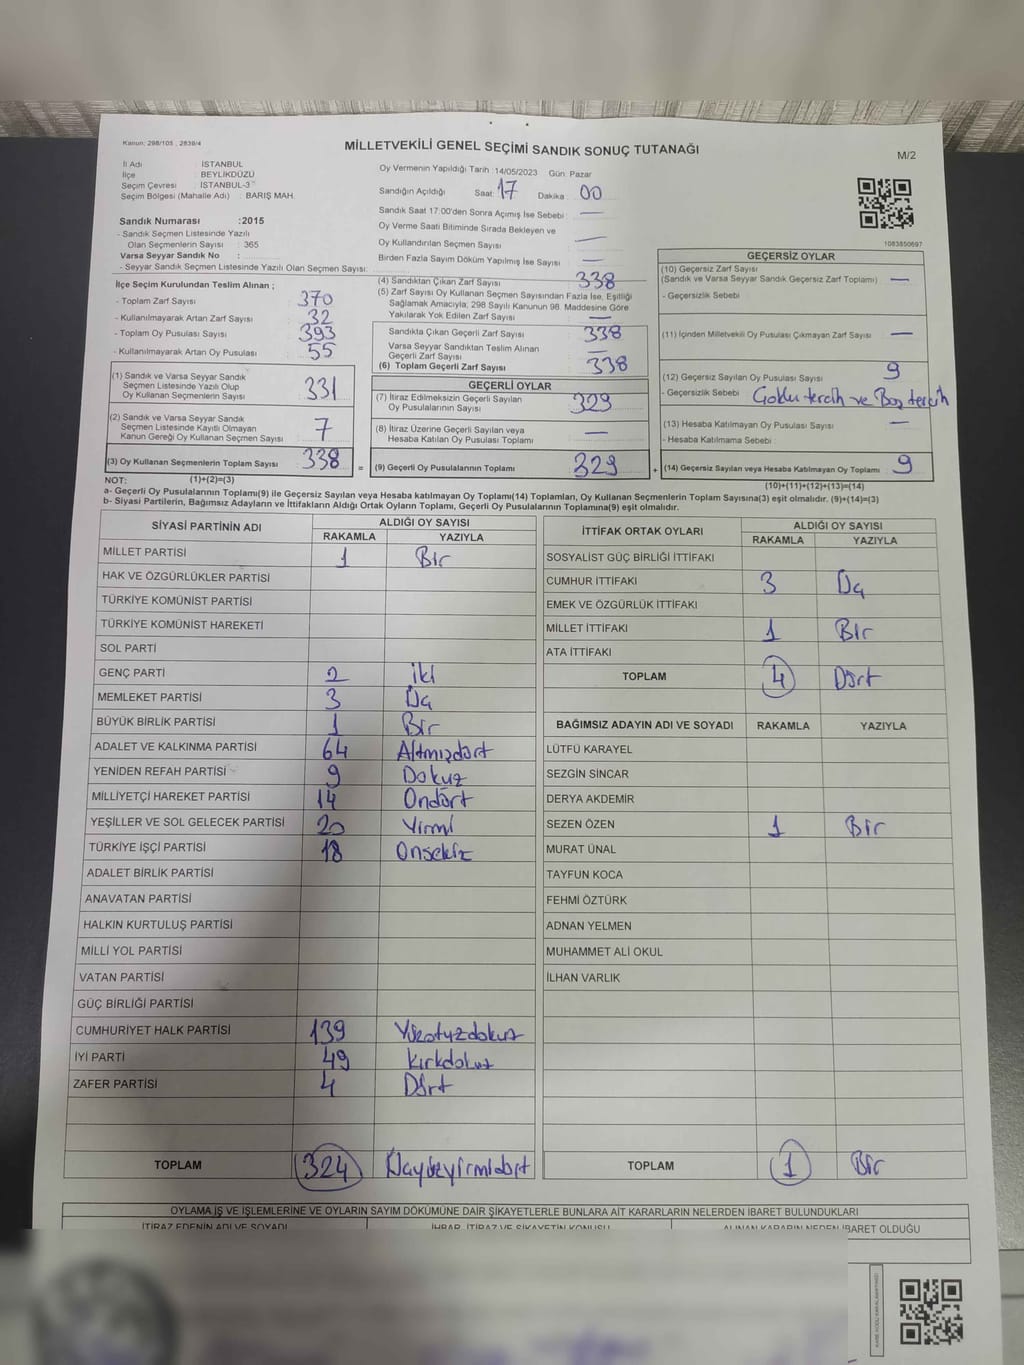 Kanun: 298/105 , 2839/4
MİLLETVEKİLİ GENEL SEÇİMİ SANDIK SONUÇ TUTANAĞI
M/2
İl Adı : İSTANBUL
İlçe : BEYLİKDÜZÜ
Seçim Çevresi : İSTANBUL-3
Seçim Bölgesi (Mahalle Adı) : BARIŞ MAH.
Sandık Numarası :2015
- Sandık Seçmen Listesinde Yazılı
Olan Seçmenlerin Sayısı : 365
Varsa Seyyar Sandık No :
- Seyyar Sandık Seçmen Listesinde Yazılı Olan Seçmen Sayısı:
Oy Vermenin Yapıldığı Tarih :14/05/2023 Gün: Pazar
Sandığın Açıldığı Saat: 17 Dakika : 00
Sandık Saat 17:00'den Sonra Açımış İse Sebebi : —
Oy Verme Saati Bitiminde Sırada Bekleyen ve
Oy Kullandırılan Seçmen Sayısı : —
Birden Fazla Sayım Döküm Yapılmış İse Sayısı : —
1083850697
İlçe Seçim Kurulundan Teslim Alınan ;
- Toplam Zarf Sayısı : 370
- Kullanılmayarak Artan Zarf Sayısı : 32
- Toplam Oy Pusulası Sayısı : 393
- Kullanılmayarak Artan Oy Pusulası : 55
(1) Sandık ve Varsa Seyyar Sandık
Seçmen Listesinde Yazılı Olup
Oy Kullanan Seçmenlerin Sayısı : 331
(2) Sandık ve Varsa Seyyar Sandık
Seçmen Listesinde Kayıtlı Olmayan
Kanun Gereği Oy Kullanan Seçmen Sayısı : 7
(3) Oy Kullanan Seçmenlerin Toplam Sayısı : 338
(4) Sandıktan Çıkan Zarf Sayısı : 338
(5) Zarf Sayısı Oy Kullanan Seçmen Sayısından Fazla İse, Eşitliği
Sağlamak Amacıyla, 298 Sayılı Kanunun 98. Maddesine Göre
Yakılarak Yok Edilen Zarf Sayısı : —
Sandıkta Çıkan Geçerli Zarf Sayısı : 338
Varsa Seyyar Sandıktan Teslim Alınan
Geçerli Zarf Sayısı : —
(6) Toplam Geçerli Zarf Sayısı : 338
GEÇERLİ OYLAR
(7) İtiraz Edilmeksizin Geçerli Sayılan
Oy Pusulalarının Sayısı : 329
(8) İtiraz Üzerine Geçerli Sayılan veya
Hesaba Katılan Oy Pusulası Toplamı : —
= (9) Geçerli Oy Pusulalarının Toplamı : 329
GEÇERSİZ OYLAR
(10) Geçersiz Zarf Sayısı
(Sandık ve Varsa Seyyar Sandık Geçersiz Zarf Toplamı) : —
- Geçersizlik Sebebi :
(11) İçinden Milletvekili Oy Pusulası Çıkmayan Zarf Sayısı : —
(12) Geçersiz Sayılan Oy Pusulası Sayısı : 9
- Geçersizlik Sebebi : Çoklu tercih ve Boş tercih
(13) Hesaba Katılmayan Oy Pusulası Sayısı : —
- Hesaba Katılmama Sebebi :
+ (14) Geçersiz Sayılan veya Hesaba Katılmayan Oy Toplamı : 9
NOT: (1)+(2)=(3)
(10)+(11)+(12)+(13)=(14)
a- Geçerli Oy Pusulalarının Toplamı(9) ile Geçersiz Sayılan veya Hesaba katılmayan Oy Toplamı(14) Toplamları, Oy Kullanan Seçmenlerin Toplam Sayısına(3) eşit olmalıdır. (9)+(14)=(3)
b- Siyasi Partilerin, Bağımsız Adayların ve İttifakların Aldığı Ortak Oyların Toplamı, Geçerli Oy Pusulalarının Toplamına(9) eşit olmalıdır.
SİYASİ PARTİNİN ADI ALDIĞI OY SAYISI
RAKAMLA YAZIYLA
MİLLET PARTİSİ 1 Bir
HAK VE ÖZGÜRLÜKLER PARTİSİ
TÜRKİYE KOMÜNİST PARTİSİ
TÜRKİYE KOMÜNİST HAREKETİ
SOL PARTİ
GENÇ PARTİ 2 iki
MEMLEKET PARTİSİ 3 Üç
BÜYÜK BİRLİK PARTİSİ 1 Bir
ADALET VE KALKINMA PARTİSİ 64 Altmışdört
YENİDEN REFAH PARTİSİ 9 Dokuz
MİLLİYETÇİ HAREKET PARTİSİ 14 Ondört
YEŞİLLER VE SOL GELECEK PARTİSİ 20 Yirmi
TÜRKİYE İŞÇİ PARTİSİ 18 Onsekiz
ADALET BİRLİK PARTİSİ
ANAVATAN PARTİSİ
HALKIN KURTULUŞ PARTİSİ
MİLLİ YOL PARTİSİ
VATAN PARTİSİ
GÜÇ BİRLİĞİ PARTİSİ
CUMHURİYET HALK PARTİSİ 139 Yüzotuzdokuz
İYİ PARTİ 49 Kırkdokuz
ZAFER PARTİSİ 4 Dört
TOPLAM 324 Üçyüzyirmidört
İTTİFAK ORTAK OYLARI ALDIĞI OY SAYISI
RAKAMLA YAZIYLA
SOSYALİST GÜÇ BİRLİĞİ İTTİFAKI
CUMHUR İTTİFAKI 3 Üç
EMEK VE ÖZGÜRLÜK İTTİFAKI
MİLLET İTTİFAKI 1 Bir
ATA İTTİFAKI
TOPLAM 4 Dört
BAĞIMSIZ ADAYIN ADI VE SOYADI RAKAMLA YAZIYLA
LÜTFÜ KARAYEL
SEZGİN SİNCAR
DERYA AKDEMİR
SEZEN ÖZEN 1 Bir
MURAT ÜNAL
TAYFUN KOCA
FEHMİ ÖZTÜRK
ADNAN YELMEN
MUHAMMET ALİ OKUL
İLHAN VARLIK
TOPLAM 1 Bir
OYLAMA İŞ VE İŞLEMLERİNE VE OYLARIN SAYIM DÖKÜMÜNE DAİR ŞİKAYETLERLE BUNLARA AİT KARARLARIN NELERDEN İBARET BULUNDUKLARI
İTİRAZ EDENİN ADI VE SOYADI İHBAR, İTİRAZ VE ŞİKAYETİN KONUSU ALINAN KARARIN NEDEN İBARET OLDUĞU